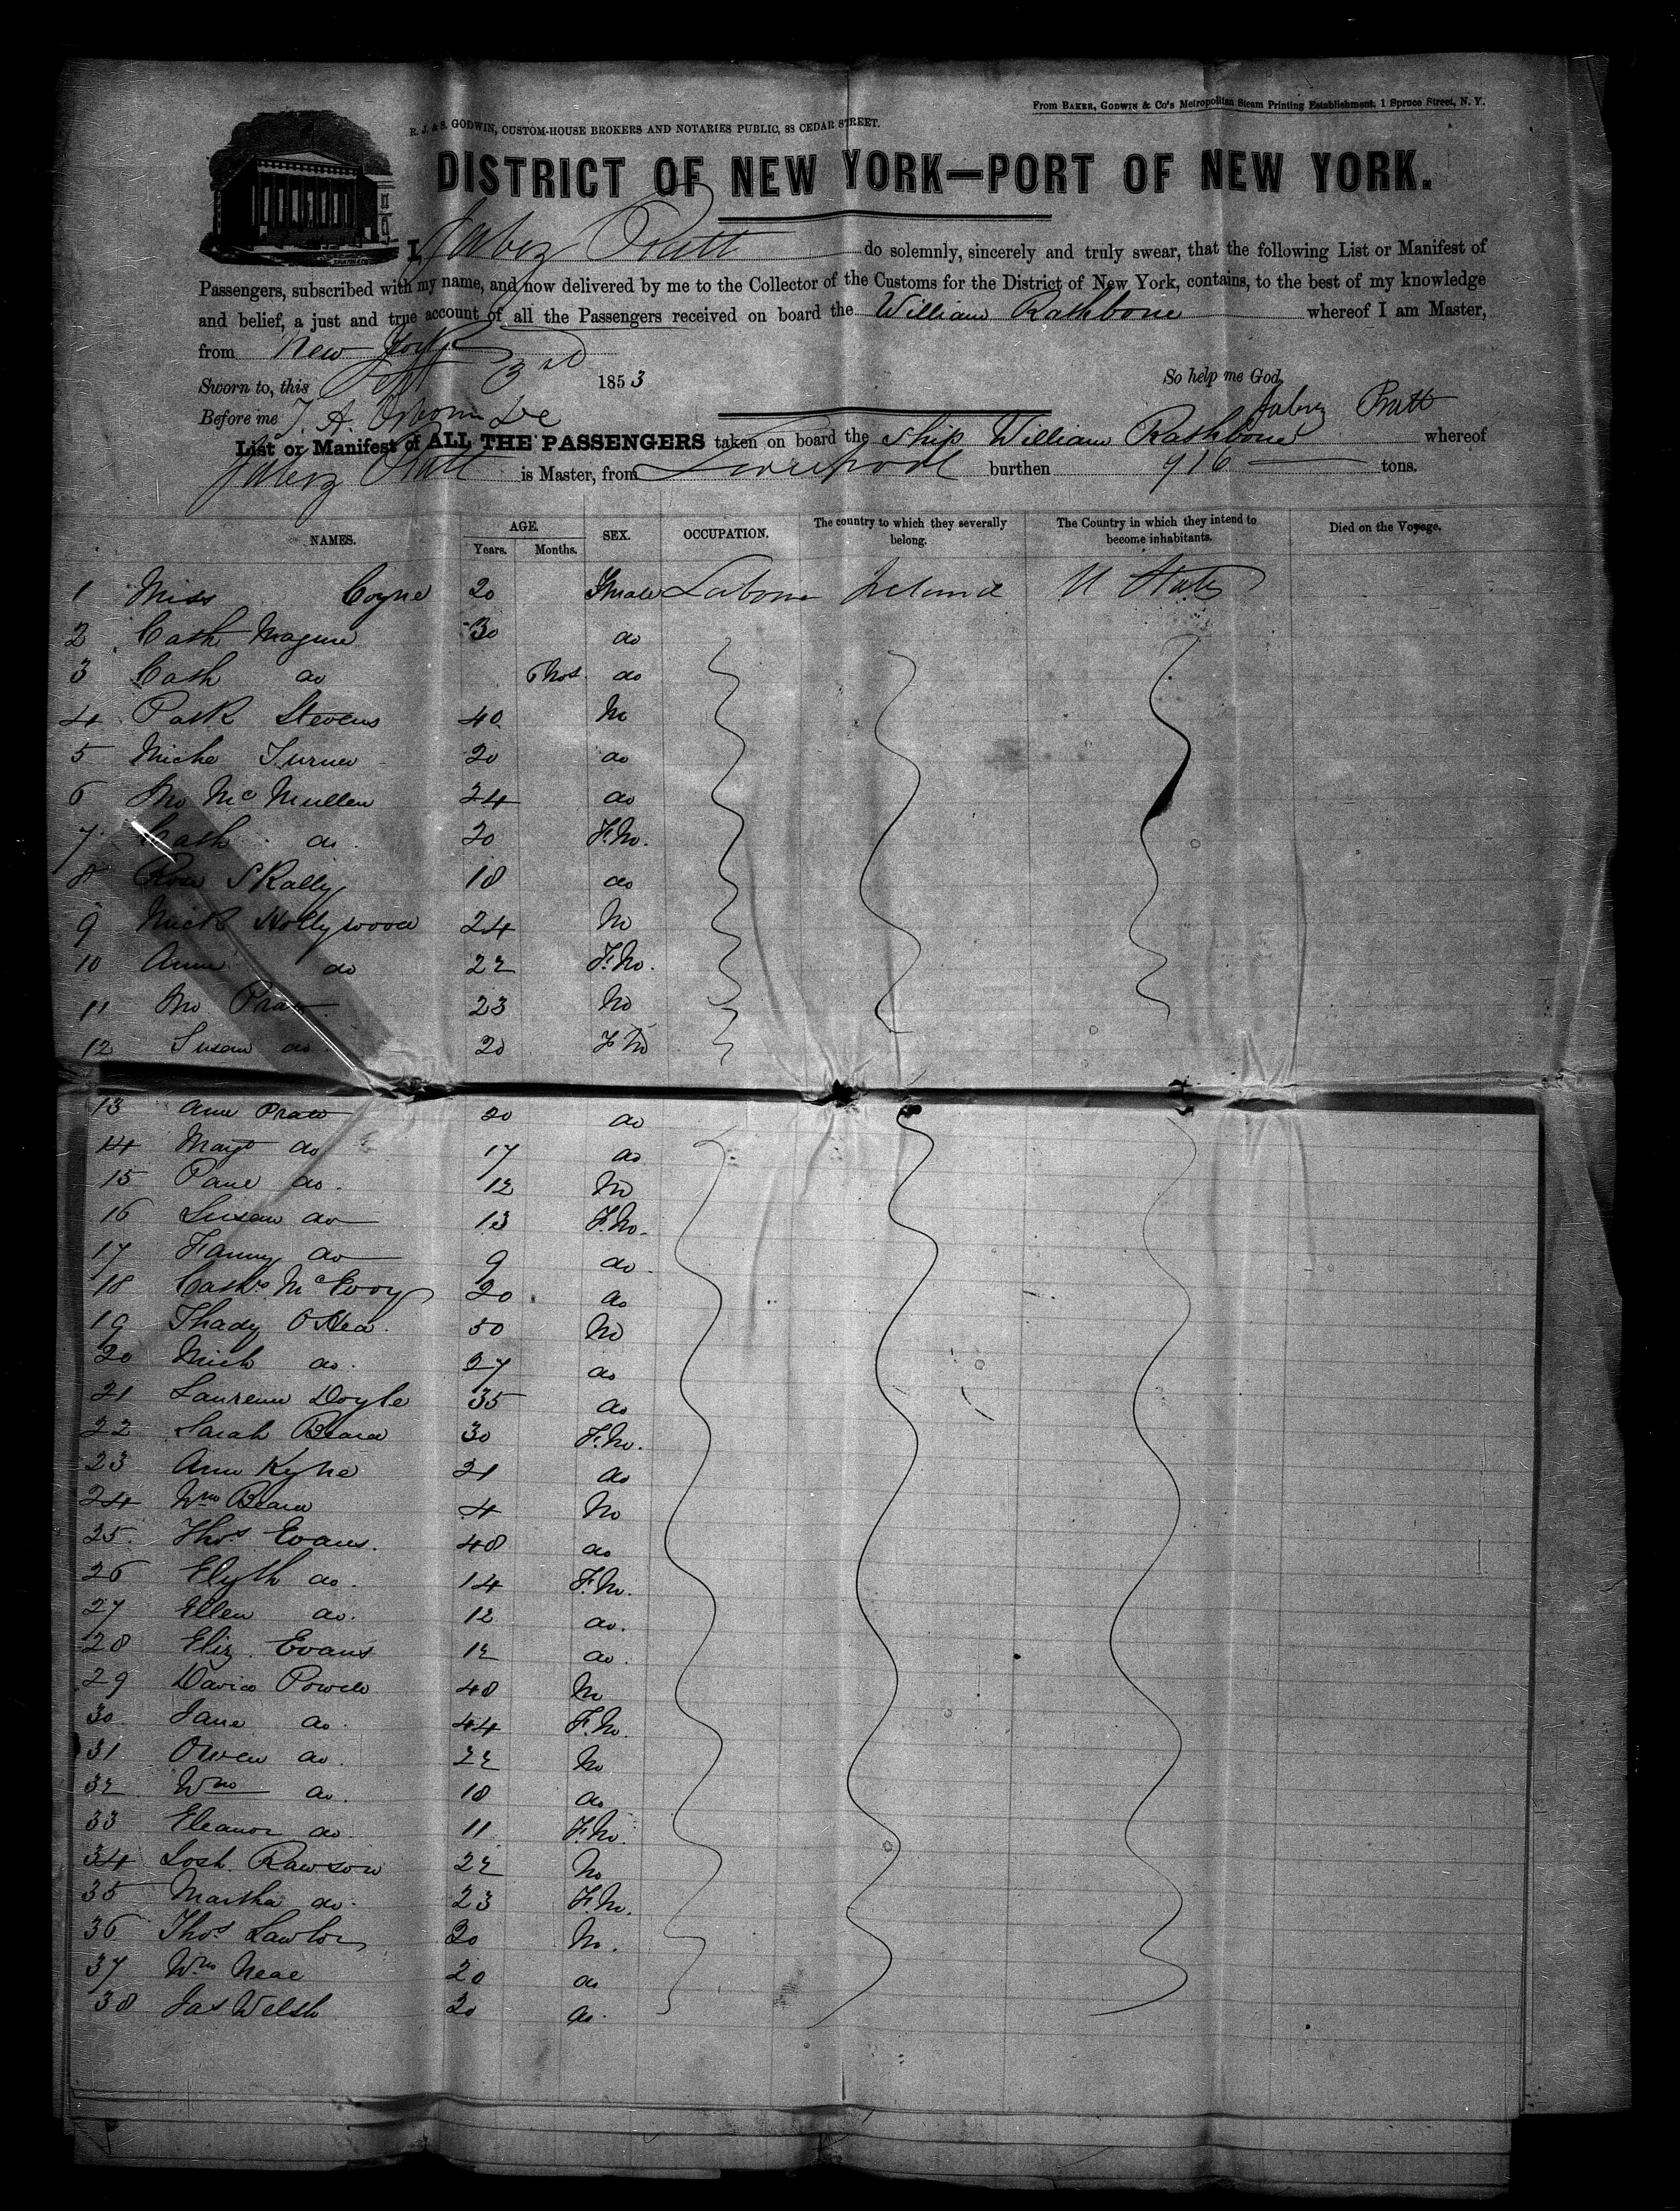 From BAKER, GODWIN & Co's Metropolitan Steam Printing Establishment, 1 Spruce Street, N. Y.
R. J. & S. GODWIN, CUSTOM-HOUSE BROKERS AND NOTARIES PUBLIC, 88 CEDAR STREET.
DISTRICT OF NEW YORK—PORT OF NEW YORK.
I, Jabez Pratt do solemnly, sincerely and truly swear, that the following List or Manifest of
Passengers, subscribed with my name, and now delivered by me to the Collector of the Customs for the District of New York, contains, to the best of my knowledge
and belief, a just and true account of all the Passengers received on board the William Rathbone whereof I am Master,
from New York
Sworn to, this Sept 3rd 1853 So help me God,
Before me Jabez Pratt
List or Manifest of ALL THE PASSENGERS taken on board the Ship William Rathbone whereof
Jabez Pratt is Master, from Liverpool burthen 916 tons.
NAMES. AGE. Years. Months. SEX. OCCUPATION. The country to which they severally belong. The Country in which they intend to become inhabitants. Died on the Voyage.
1 Miss Coyne 20 Female Labour Ireland U States
2 Cath Maguire 30 do
3 Cath do 6 Mos. do
4 Patk Stevens 40 M
5 Miche Turner 20 do
6 Jno McMullen 24 do
7 Cath do 20 F.M.
8 Rose Skally 18 do
9 Mick Hollywood 24 M
10 Anne do 22 F.M.
11 Jno 23 M
12 Susan do 20 F M
13 Ann 20 do
14 Magt do 17 do
15 do 12 M
16 Susan do 13 F.M.
17 Fanny do 9 do
18 Cathe McEvoy 20 do
19 Thady O'Hea 50 M
20 Mich do 27 do
21 Laurence Doyle 35 do
22 Sarah Beard 30 F.M.
23 Ann Kyne 21 do
24 Wm Beard 4 M
25 Thos Evans 48 do
26 Elyth do 14 F.M.
27 Ellen do 12 do
28 Eliz. Evans 12 do
29 David Powell 48 M
30 Jane do 44 F.M.
31 Owen do 22 M
32 Wm do 18 do
33 Eleanor do 11 F.M.
34 Josh. Rawson 22 M
35 Martha do 23 F.M.
36 Thos Lawlor 20 M.
37 Wm Neal 20 do
38 Jas Welsh 20 do